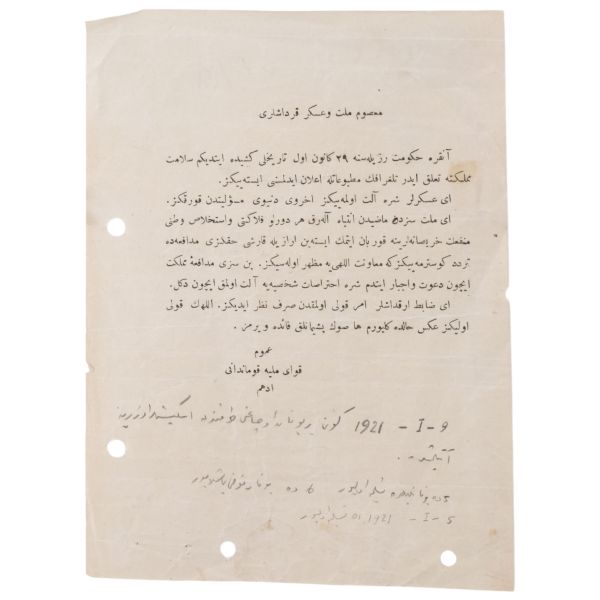 معصوم ملت و عسكر قرداشلری
آنقره حكومت رذيله‌سنه ٢٩ كانون اول تاريخلی كشيده ايتديكم سلامت
مملكته تعلق ايدر تلغرافك مطبوعاتله اعلان ايدلمسنی ايسته‌ييكز.
ای عسكرلر شره آلت اولمه‌ييكز اخروی دنيوی مسؤليتدن قورقكز.
ای ملت سزده ماضيدن انتباه آله‌رق هر دورلو فلاكتی و استخلاص وطنی
منفعت خريصانه‌لرينه قوربان ايتمك ايسته‌ين اراذيله قارشی حقكزی مدافعه‌ده
تردد كوسترمه‌ييكز كه معاونت اللهی‌يه مظهر اوله‌سيكز. بن سزی مدافعۀ مملكت
ايچون دعوت و اجبار ايتدم شره احتراصات شخصيه‌يه آلت اولمق ايچون دكل.
ای ضابط ارقداشلر امر قولی اولمقدن صرف نظر ايديكز. اللهك قولی
اوليكز عكس حالده كليورم ها صوك پشيمانلق فائده ويرمز.
عموم
قوای مليه قوماندانی
ادهم
9 - I - 1921 كونی يونان
5 ده 6 ده
5 - I - 1921